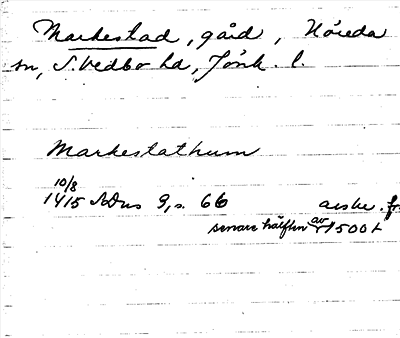 Markestad, gård, Nöreda
sn, S. Vedbo hd, Jönk. l.
Markestathum
10/8
1415 SDns 2, s. 66 avskr. fr.
senare hälften av 1500 t